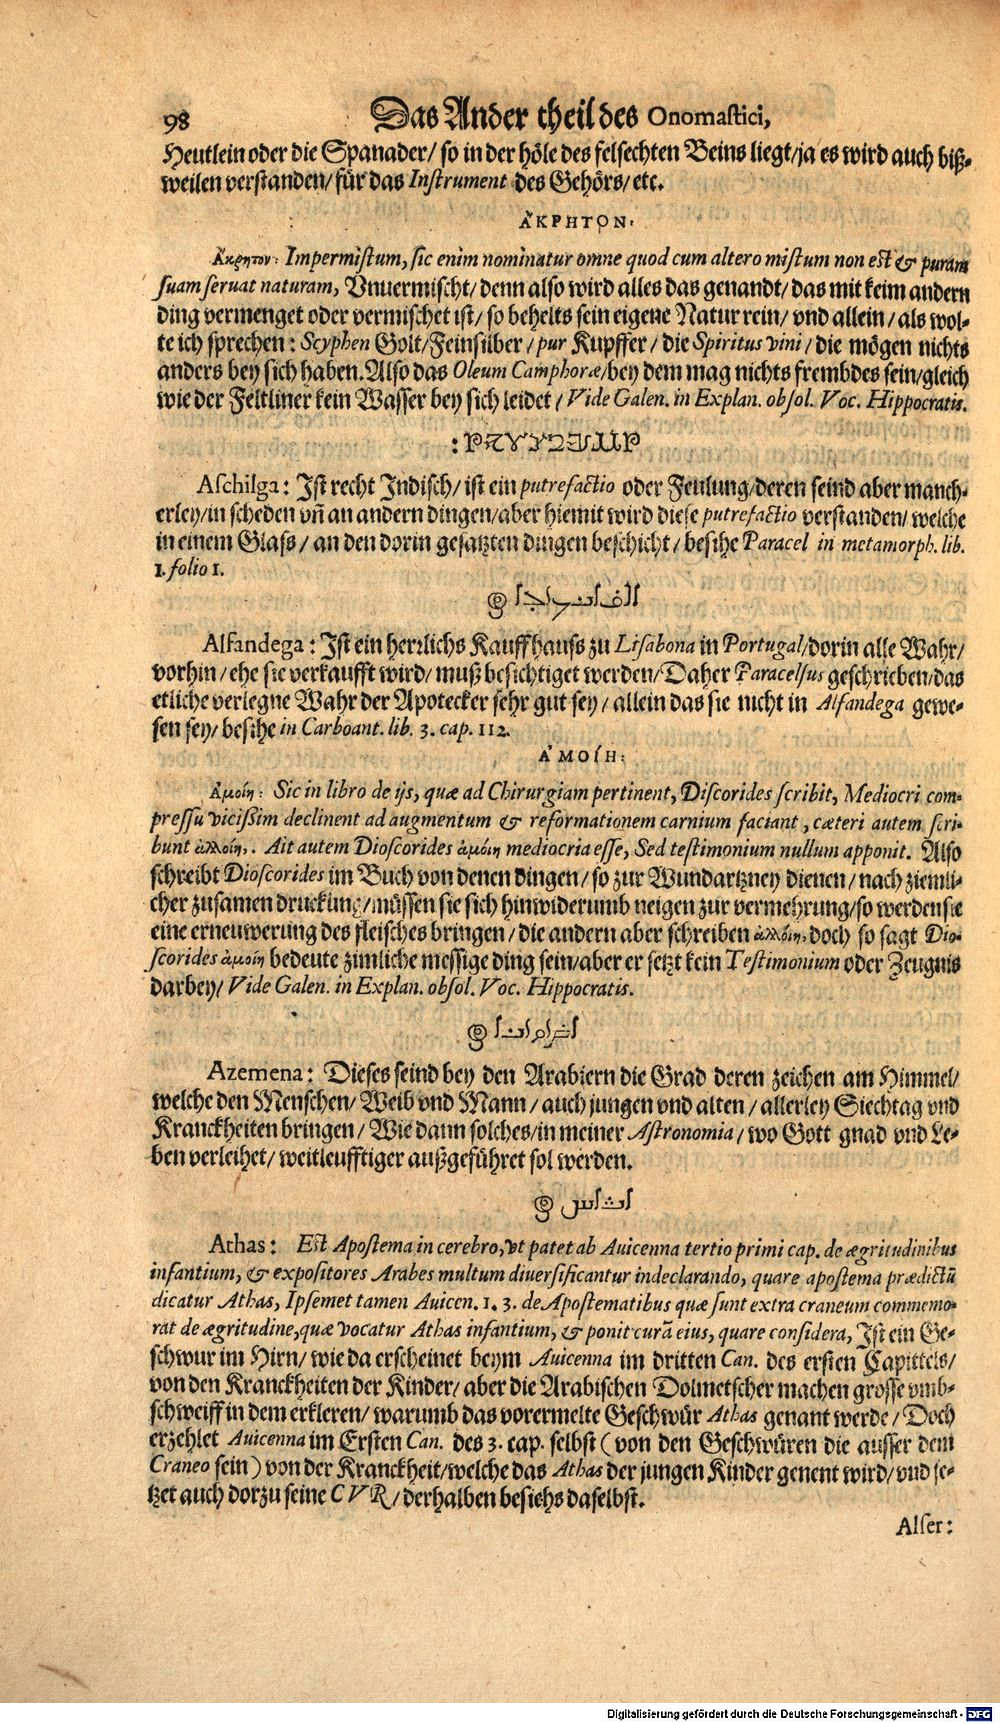 98 Das Ander theil des Onomastici,
Heutlein oder die Spanader/ so in der höle des felsechten Beins liegt/ ja es wird auch biß-
weilen verstanden/ für das Instrument des Gehörs/ etc.
ἈΚΡΗΤΟΝ.
Ἄκρητον: Impermistum, sic enim nominatur omne quod cum altero mistum non est & puram
suam servat naturam, Vnuermischt/ denn also wird alles das genandt/ das mit keim andern
ding vermenget oder vermischet ist/ so behelts sein eigene Natur rein/ vnd allein/ als wol-
te ich sprechen: Scyphen Golt/ Feinsilber/ pur Kupffer/ die Spiritus vini/ die mögen nichts
anders bey sich haben. Also das Oleum Camphoræ/ bey dem mag nichts frembdes sein/ gleich
wie der Feltliner kein Wasser bey sich leidet/ Vide Galen. in Explan. obsol. Voc. Hippocratis.
Aschilga: Ist recht Indisch/ ist ein putrefactio oder Feulung/ deren seind aber manch-
erley/ in scheden vñ an andern dingen/ aber hiemit wird diese putrefactio verstanden/ welche
in einem Glass/ an den dorin gesatzten dingen beschicht/ besihe Paracel in metamorph. lib.
1. folio 1.
Alfandega: Ist ein herrlichs Kauffhauss zu Lisabona in Portugal/ dorin alle Wahr/
vorhin/ ehe sie verkaufft wird/ muß besichtiget werden/ Daher Paracelsus geschrieben/ das
etliche verlegne Wahr der Apotecker sehr gut sey/ allein das sie nicht in Alfandega gewe-
sen sey/ besihe in Carboant. lib. 3. cap. 112.
ἈΜΟΊΗ:
Ἀμοίη: Sic in libro de ijs, quæ ad Chirurgiam pertinent, Discorides scribit, Mediocri com-
pressu vicissim declinent ad augmentum & reformationem carnium faciant, cæteri autem scri-
bunt ἀλλοίη,. Ait autem Dioscorides ἀμοίη mediocria esse, Sed testimonium nullum apponit. Also
schreibt Dioscorides im Buch von denen dingen/ so zur Wundartzney dienen/ nach ziemli-
cher zusamen druckung/ müssen sie sich hinwiderumb neigen zur vermehrung/ so werden sie
eine erneuwerung des fleisches bringen/ die andern aber schreiben ἀλλοίη, doch so sagt Dio-
scorides ἀμοίη bedeute zimliche messige ding sein/ aber er setzt kein Testimonium oder Zeugnis
darbey/ Vide Galen. in Explan. obsol. Voc. Hippocratis.
Azemena: Dieses seind bey den Arabiern die Grad deren zeichen am Himmel/
welche den Menschen/ Weib vnd Mann/ auch jungen vnd alten/ allerley Siechtag vnd
Kranckheiten bringen/ Wie dann solches/ in meiner Astronomia/ wo Gott gnad vnd Le-
ben verleihet/ weitleufftiger außgeführet sol werden.
Athas: Est Apostema in cerebro, vt patet ab Auicenna tertio primi cap. de ægritudinibus
infantium, & expositores Arabes multum diversificantur in declarando, quare apostema prædictũ
dicatur Athas, Ipsemet tamen Auicen. 1. 3. de Apostematibus quæ sunt extra craneum commemo-
rat de ægritudine, quæ vocatur Athas infantium, & ponit curã eius, quare considera, Ist ein Ge-
schwur im Hirn/ wie da erscheinet beym Auicenna im dritten Can. des ersten Capittels/
von den Kranckheiten der Kinder/ aber die Arabischen Dolmetscher machen grosse vmb-
schweiff in dem erkleren/ warumb das vorermelte Geschwür Athas genant werde/ Doch
erzehlet Auicenna im Ersten Can. des 3. cap. selbst (von den Geschwüren die ausser dem
Craneo sein) von der Kranckheit/ welche das Athas der jungen Kinder genent wird/ vnd se-
tzet auch dorzu seine CVR/ derhalben besiehs daselbst.
Alser:
Digitalisierung gefördert durch die Deutsche Forschungsgemeinschaft - DFG